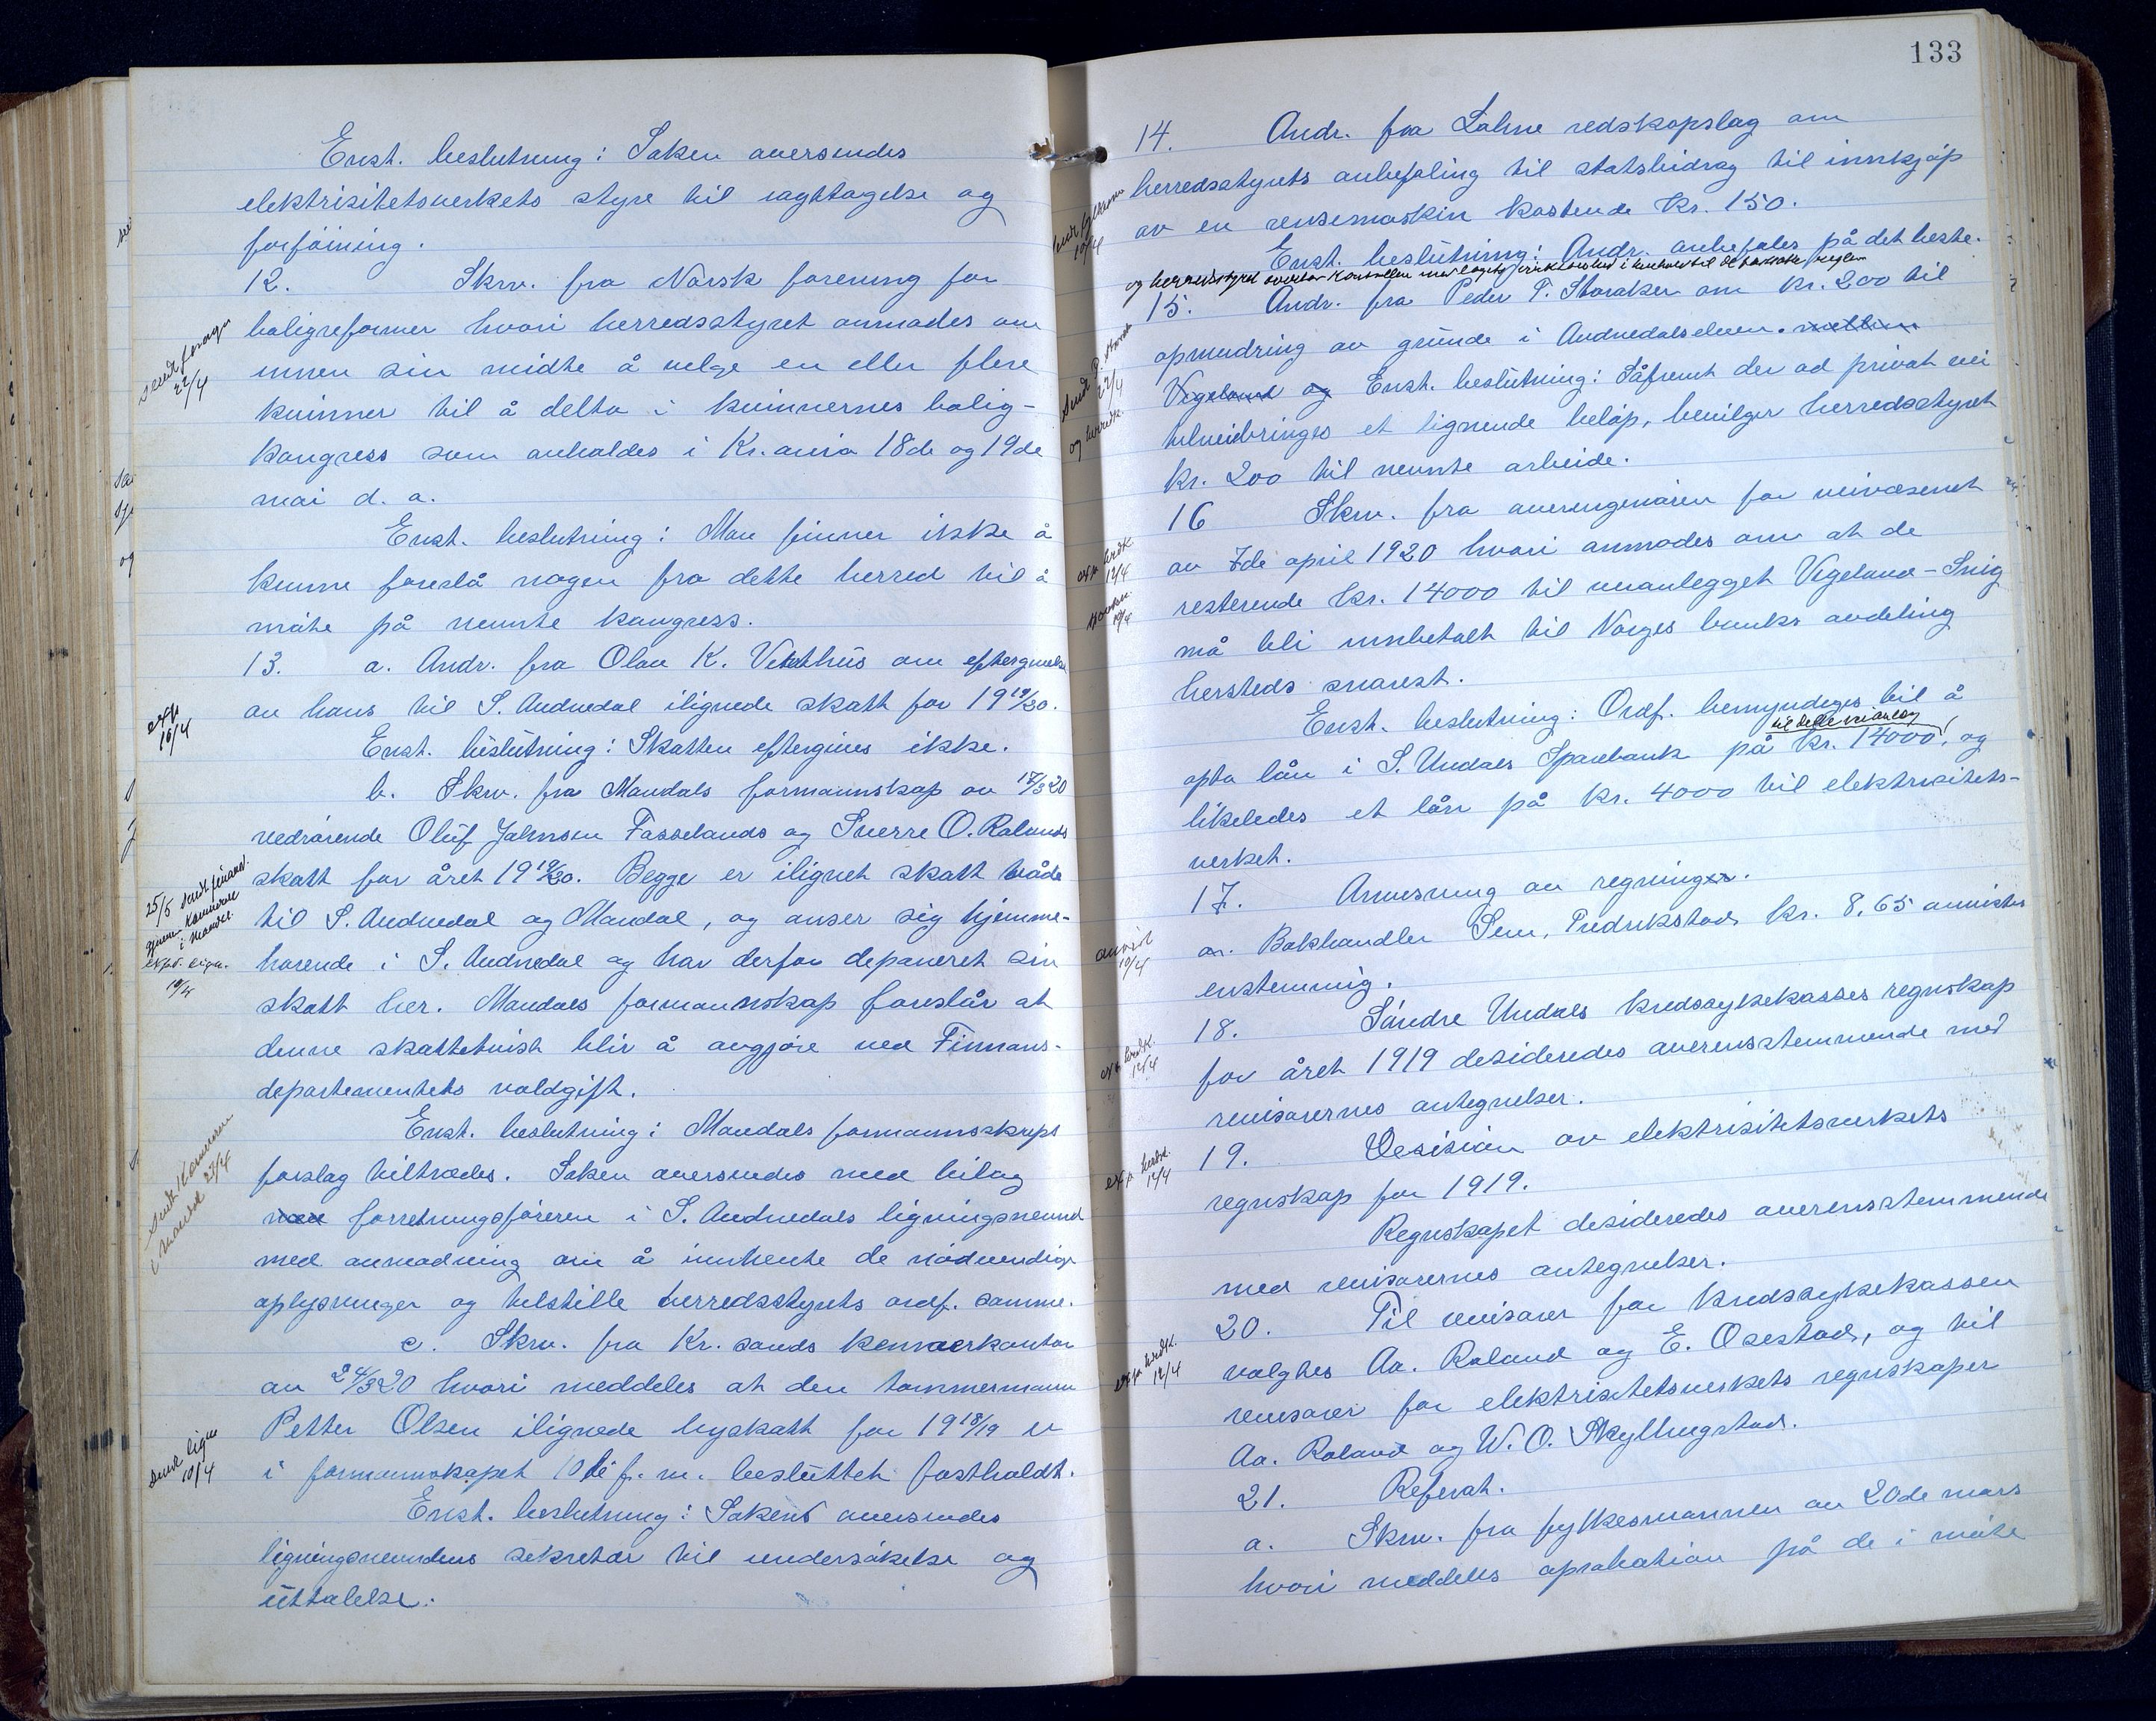 Enst. beslutning: Saken oversendes
elektrisitetsverkets styre til iagttagelse og
forföining.
12. Skrv. fra Norsk forening for
boligreformer hvori herredsstyret anmodes om
innen sin midte å velge en eller flere
kvinner til å delta i kvinnernes bolig-
kongress som avholdes i Kr.ania 18de og 19de
mai d. a.
Enst. beslutning: Man finner ikke å
kunne foreslå nogen fra dette herred til å
möte på nevnte kongress.
13. a. Andr. fra Olav K. Vetthus om eftergivelse
av hans til S. Audnedal ilignede skatt for 19 19/20.
Enst. beslutning: Skatten eftergives ikke.
b. Skrv. fra Mandals formannskap av 17/3 20
vedrörende Oluf Jahnsen Fasselands og Sverre O. Rolands
skatt for året 19 19/20. Begge er ilignet skatt både
til S. Audnedal og Mandal, og anser sig hjemme-
hörende i S. Audnedal og har derfor deponeret sin
skatt her. Mandals formannskap foreslår at
denne skattetvist blir å avgjöre ved Finnans-
departementets voldgift.
Enst. beslutning: Mandals formannsskaps
forslag tiltredes. Saken oversendes med bilag
forretningsföreren i S. Audnedals ligningsnevnd
med anmodning om å innhente de nödvendige
oplysninger og tilstille herredsstyrets ordf. samme.
c. Skrv. fra Kr. sands kemnerkontor
av 24/3 20 hvori meddeles at den tömmermann
Petter Olsen ilignede byskatt for 19 18/19 er
i formannskapet 10de f. m. besluttet fastholdt.
Enst. beslutning: Saken oversendes
ligningsnevndens sekretær til undersökelse og
uttalelse.
sendt forening 22/4
exp 10/4
25/5 sendt finansd. gjennem Kemneren i Mandal.
exped. lign. 10/4
Sendt Kemneren i Mandal 23/4
sendt lign 10/4
133
14. Andr. fra Lohne redskapslag om
herredsstyrets anbefaling til statsbidrag til innkjöp
av en rensemaskin kostende kr. 150.
Enst. beslutning: Andr. anbefales på det beste.
og herredsstyret overtar kontrollen med lagets virksomhet i henhold til de fastsatte regler
15. Andr. fra Peder T. Storaker om kr. 200 til
opmudring av grunde i Audnedalselven. mellem
Vigeland og Enst. beslutning: Såfremt der ad privat vei
tilveiebringes et lignende belöp, bevilger herredsstyret
kr. 200 til nevnte arbeide.
16 Skrv. fra overingeniören for veivæsenet
av 7de april 1920 hvori anmodes om at de
resterende kr. 14000 til veianlegget Vigeland-Snig
må bli innbetalt til Norges banks avdeling
hersteds snarest.
Enst. beslutning: Ordf. bemyndiges til å
til dette veianlæg
opta lån i S. Undals Sparebank på kr. 14000, og
likeledes et lån på kr. 4000 til elektrisitets-
verket.
17. Anvisning av regninger.
a. Bokhandler Sem, Fredrikstad kr. 8,65 anvistes
enstemmig.
18. Söndre Undals kredssykekasses regnskap
for året 1919 desideredes overensstemmende med
revisorernes antegnelser.
19. Desision av elektrisitetsverkets
regnskap for 1919.
Regnskapet desideredes overensstemmende
med revisorernes antegnelser.
20. Til revisorer for kredssykekassen
valgtes Aa. Roland og E. Osestad, og til
revisorer for elektrisitetsverkets regnskaper
Aa. Roland og W. O. Skyllingstad.
21. Referat.
a. Skrv. fra fylkesmannen av 20de mars
hvori meddeles aprobation på de i möte
10/4
22/4
og herredk.
exp herdk. 12/4
anvist 10/4
exp herdk. 12/4
exp herdk. 12/4
exp herdk. 12/4